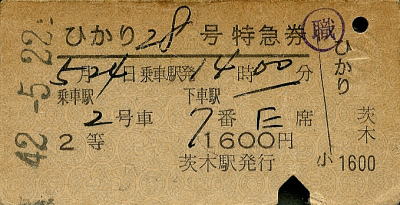 42.-5.22.
ひかり 28 号 特急券
職
5月24日 乗車駅発 14時00分
乗車駅 下車駅
2号車 7番 E席
2等 1600円
茨木駅発行
ひかり
茨木
小 1600